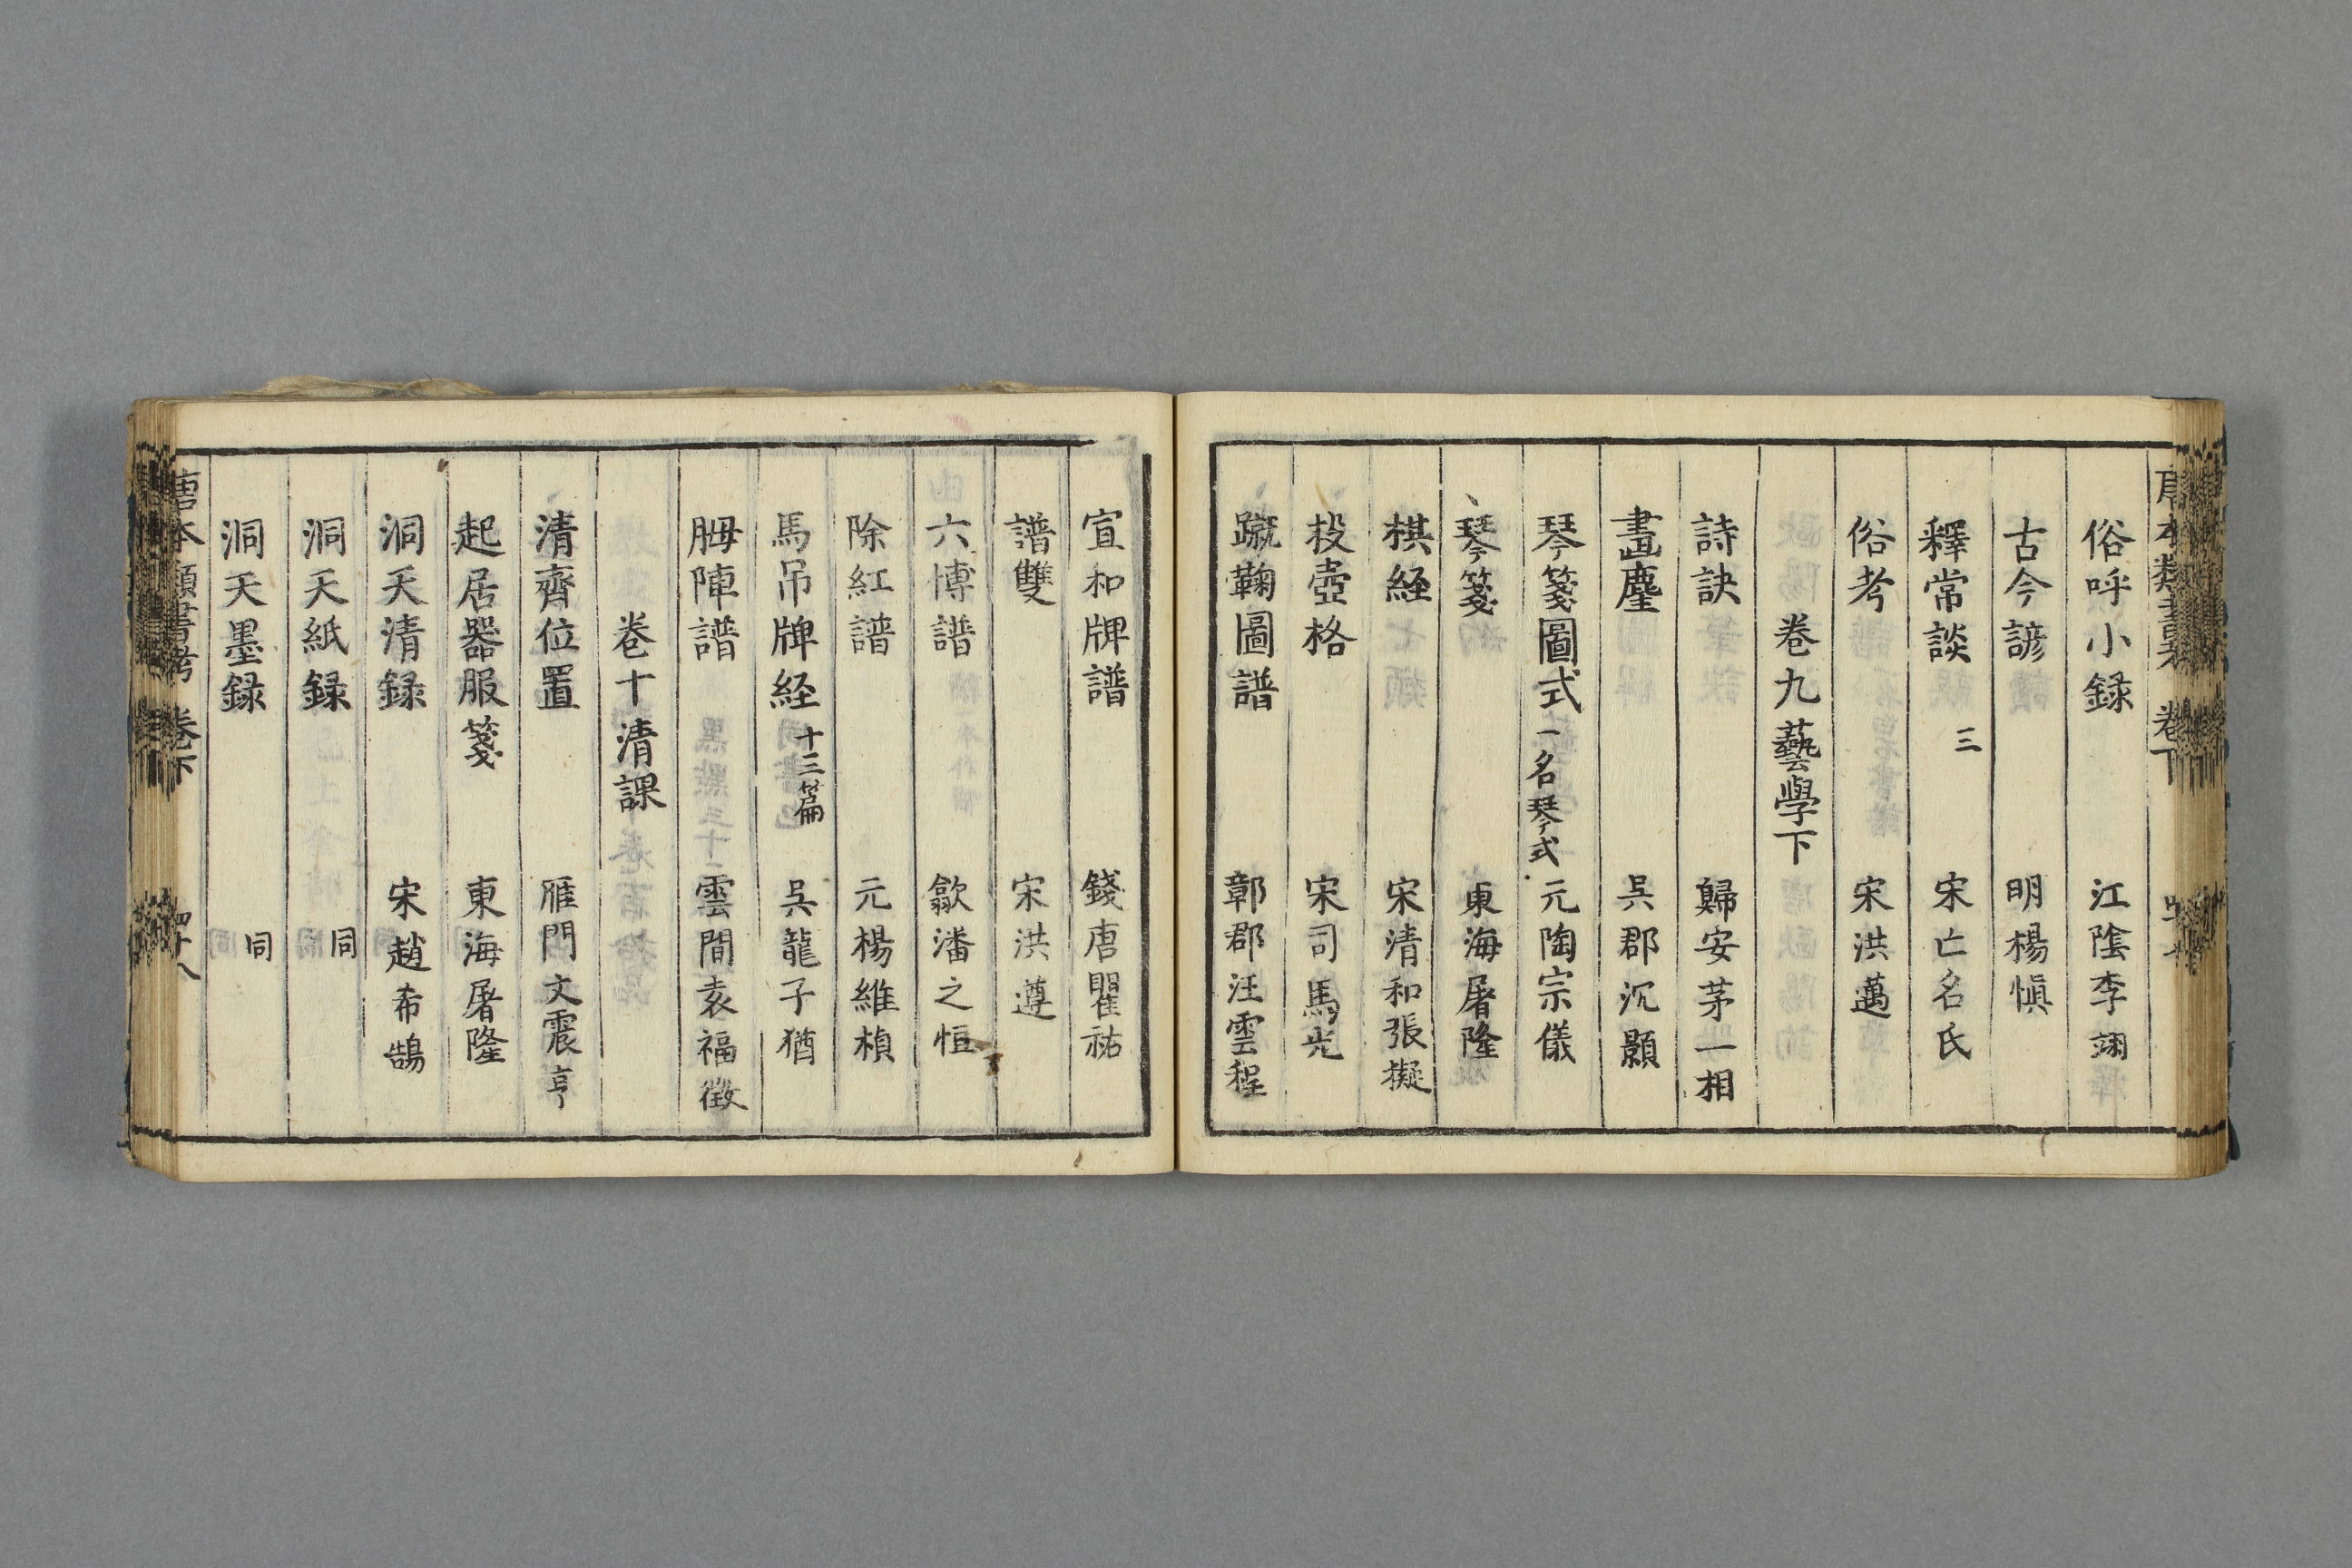 俗呼小録 江陰李翊
古今諺 明楊愼
釋常談 三 宋亡名氏
俗考 宋洪邁
卷九藝學下
詩訣 歸安茅一相
畫麈 吳郡沉顥
琴箋圖式 一名琴式 元陶宗儀
琴箋 東海屠隆
棋経 宋清和張擬
投壺格 宋司馬光
蹴鞠圖譜 鄣郡汪雲程
宣和牌譜 錢唐瞿祐
譜雙 宋洪遵
六博譜 歙潘之恒
除紅譜 元楊維楨
馬吊牌経 十三篇 吳龍子猶
䏬陣譜 雲間袁福徵
卷十清課
清齊位置 雁門文震亨
起居器服箋 東海屠隆
洞天清録 宋趙希鵠
洞天紙録 同
洞天墨録 同
唐本類書考 卷下